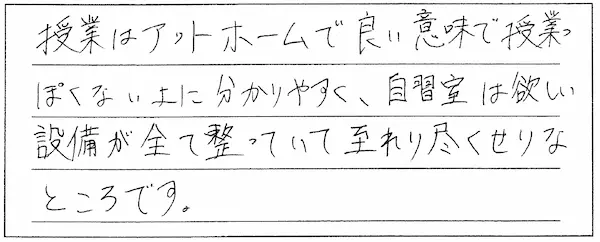 授業はアットホームで良い意味で授業っ
ぽくない上に分かりやすく、自習室は欲しい
設備が全て整っていて至れり尽くせりな
ところです。